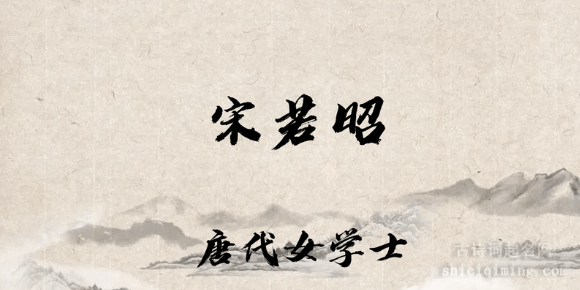 宋若昭
唐代女学士
古诗词起名网
shiciqiming.com